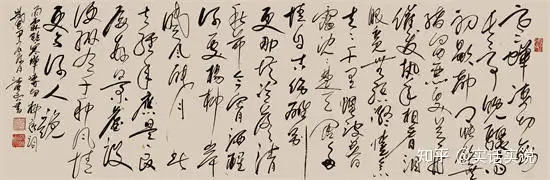 寒蝉凄切对
长亭晚骤雨
初歇都门帐饮无
绪留恋处兰舟
催发执手相看泪
眼竟无语凝噎念
去去千里烟波暮
霭沉沉楚天阔多
情自古伤离别
更那堪冷落清
秋节今宵酒醒
何处杨柳岸
晓风残月此
去经年应是良
辰好景虚设
便纵有千种风情
更与何人说
知乎 @实话实说